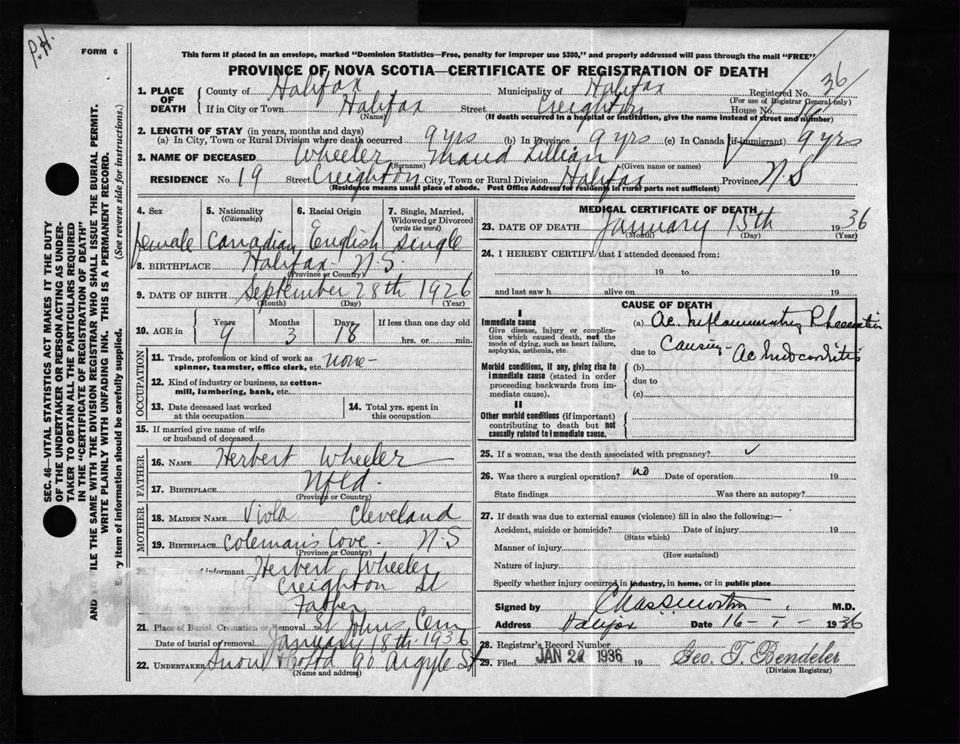 P.H.
FORM 6
This form if placed in an envelope, marked "Dominion Statistics—Free, penalty for improper use $300," and properly addressed will pass through the mail "FREE"
PROVINCE OF NOVA SCOTIA—CERTIFICATE OF REGISTRATION OF DEATH
36
1. PLACE OF DEATH County of Halifax Municipality of Halifax Registered No.
(For use of Registrar General only)
If in City or Town Halifax Street Creighton House No. 19
(Name) (If death occurred in a hospital or institution, give the name instead of street and number)
2. LENGTH OF STAY (in years, months and days)
(a) In City, Town or Rural Division where death occurred 9 yrs (b) in Province 9 yrs (c) In Canada (if immigrant) 9 yrs
3. NAME OF DECEASED Wheeler Maud Lillian
(Surname) (Given name or names)
RESIDENCE No. 19 Street Creighton City, Town or Rural Division Halifax Province N.S
(Residence means usual place of abode. Post Office Address for residents in rural parts not sufficient)
4. Sex 5. Nationality (Citizenship) 6. Racial Origin 7. Single, Married, Widowed or Divorced (write the word)
female Canadian English Single
8. BIRTHPLACE Halifax N.S.
(Province or Country)
9. DATE OF BIRTH September 28th 1926
(Month) (Day) (Year)
10. AGE in Years Months Days If less than one day old
9 3 18 hrs. or min.
OCCUPATION
11. Trade, profession or kind of work as spinner, teamster, office clerk, etc. none-
12. Kind of industry or business, as cotton-mill, lumbering, bank, etc.
13. Date deceased last worked at this occupation 14. Total yrs. spent in this occupation
15. If married give name of wife or husband of deceased
FATHER
16. NAME Herbert Wheeler
17. BIRTHPLACE Nfld.
(Province or Country)
MOTHER
18. MAIDEN NAME Viola Cleveland
19. BIRTHPLACE Coleman's Cove - N-S
(Province or Country)
informant Herbert Wheeler
Creighton St
Father
21. Place of Burial, Cremation or Removal St Johns Cem
Date of burial or removal January 18th-1936
22. UNDERTAKER Snow 90 Argyle St
(Name and address)
MEDICAL CERTIFICATE OF DEATH
23. DATE OF DEATH January 15th 1936
(Month) (Day) (Year)
24. I HEREBY CERTIFY that I attended deceased from:
19 to 19
and last saw h alive on 19
CAUSE OF DEATH
I
Immediate cause
Give disease, injury or complication which caused death, not the mode of dying, such as heart failure, asphyxia, asthenia, etc.
(a) Ac. Inflammatory
due to Causing - Ac Endocarditis
Morbid conditions, if any, giving rise to immediate cause (stated in order proceeding backwards from immediate cause)
(b)
due to
(c)
II
Other morbid conditions (if important) contributing to death but not causally related to immediate cause.
25. If a woman, was the death associated with pregnancy? ✓
26. Was there a surgical operation? no Date of operation 19
State findings Was there an autopsy?
27. If death was due to external causes (violence) fill in also the following:—
Accident, suicide or homicide? Date of injury 19
(State which)
Manner of injury
(How sustained)
Nature of injury
Specify whether injury occurred in industry, in home, or in public place
Signed by M.D.
Address Halifax Date 16-I- 1936
28. Registrar's Record Number
29. Filed JAN 1936 19 Geo. T. Bendeler
(Division Registrar)
SEC. 46—VITAL STATISTICS ACT MAKES IT THE DUTY OF THE UNDERTAKER OR PERSON ACTING AS UNDERTAKER TO OBTAIN ALL THE PARTICULARS REQUIRED IN THE "CERTIFICATE OF REGISTRATION OF DEATH"
AND FILE THE SAME WITH THE DIVISION REGISTRAR WHO SHALL ISSUE THE BURIAL PERMIT.
WRITE PLAINLY WITH UNFADING INK. THIS IS A PERMANENT RECORD.
item of information should be carefully supplied. (See reverse side for instructions.)